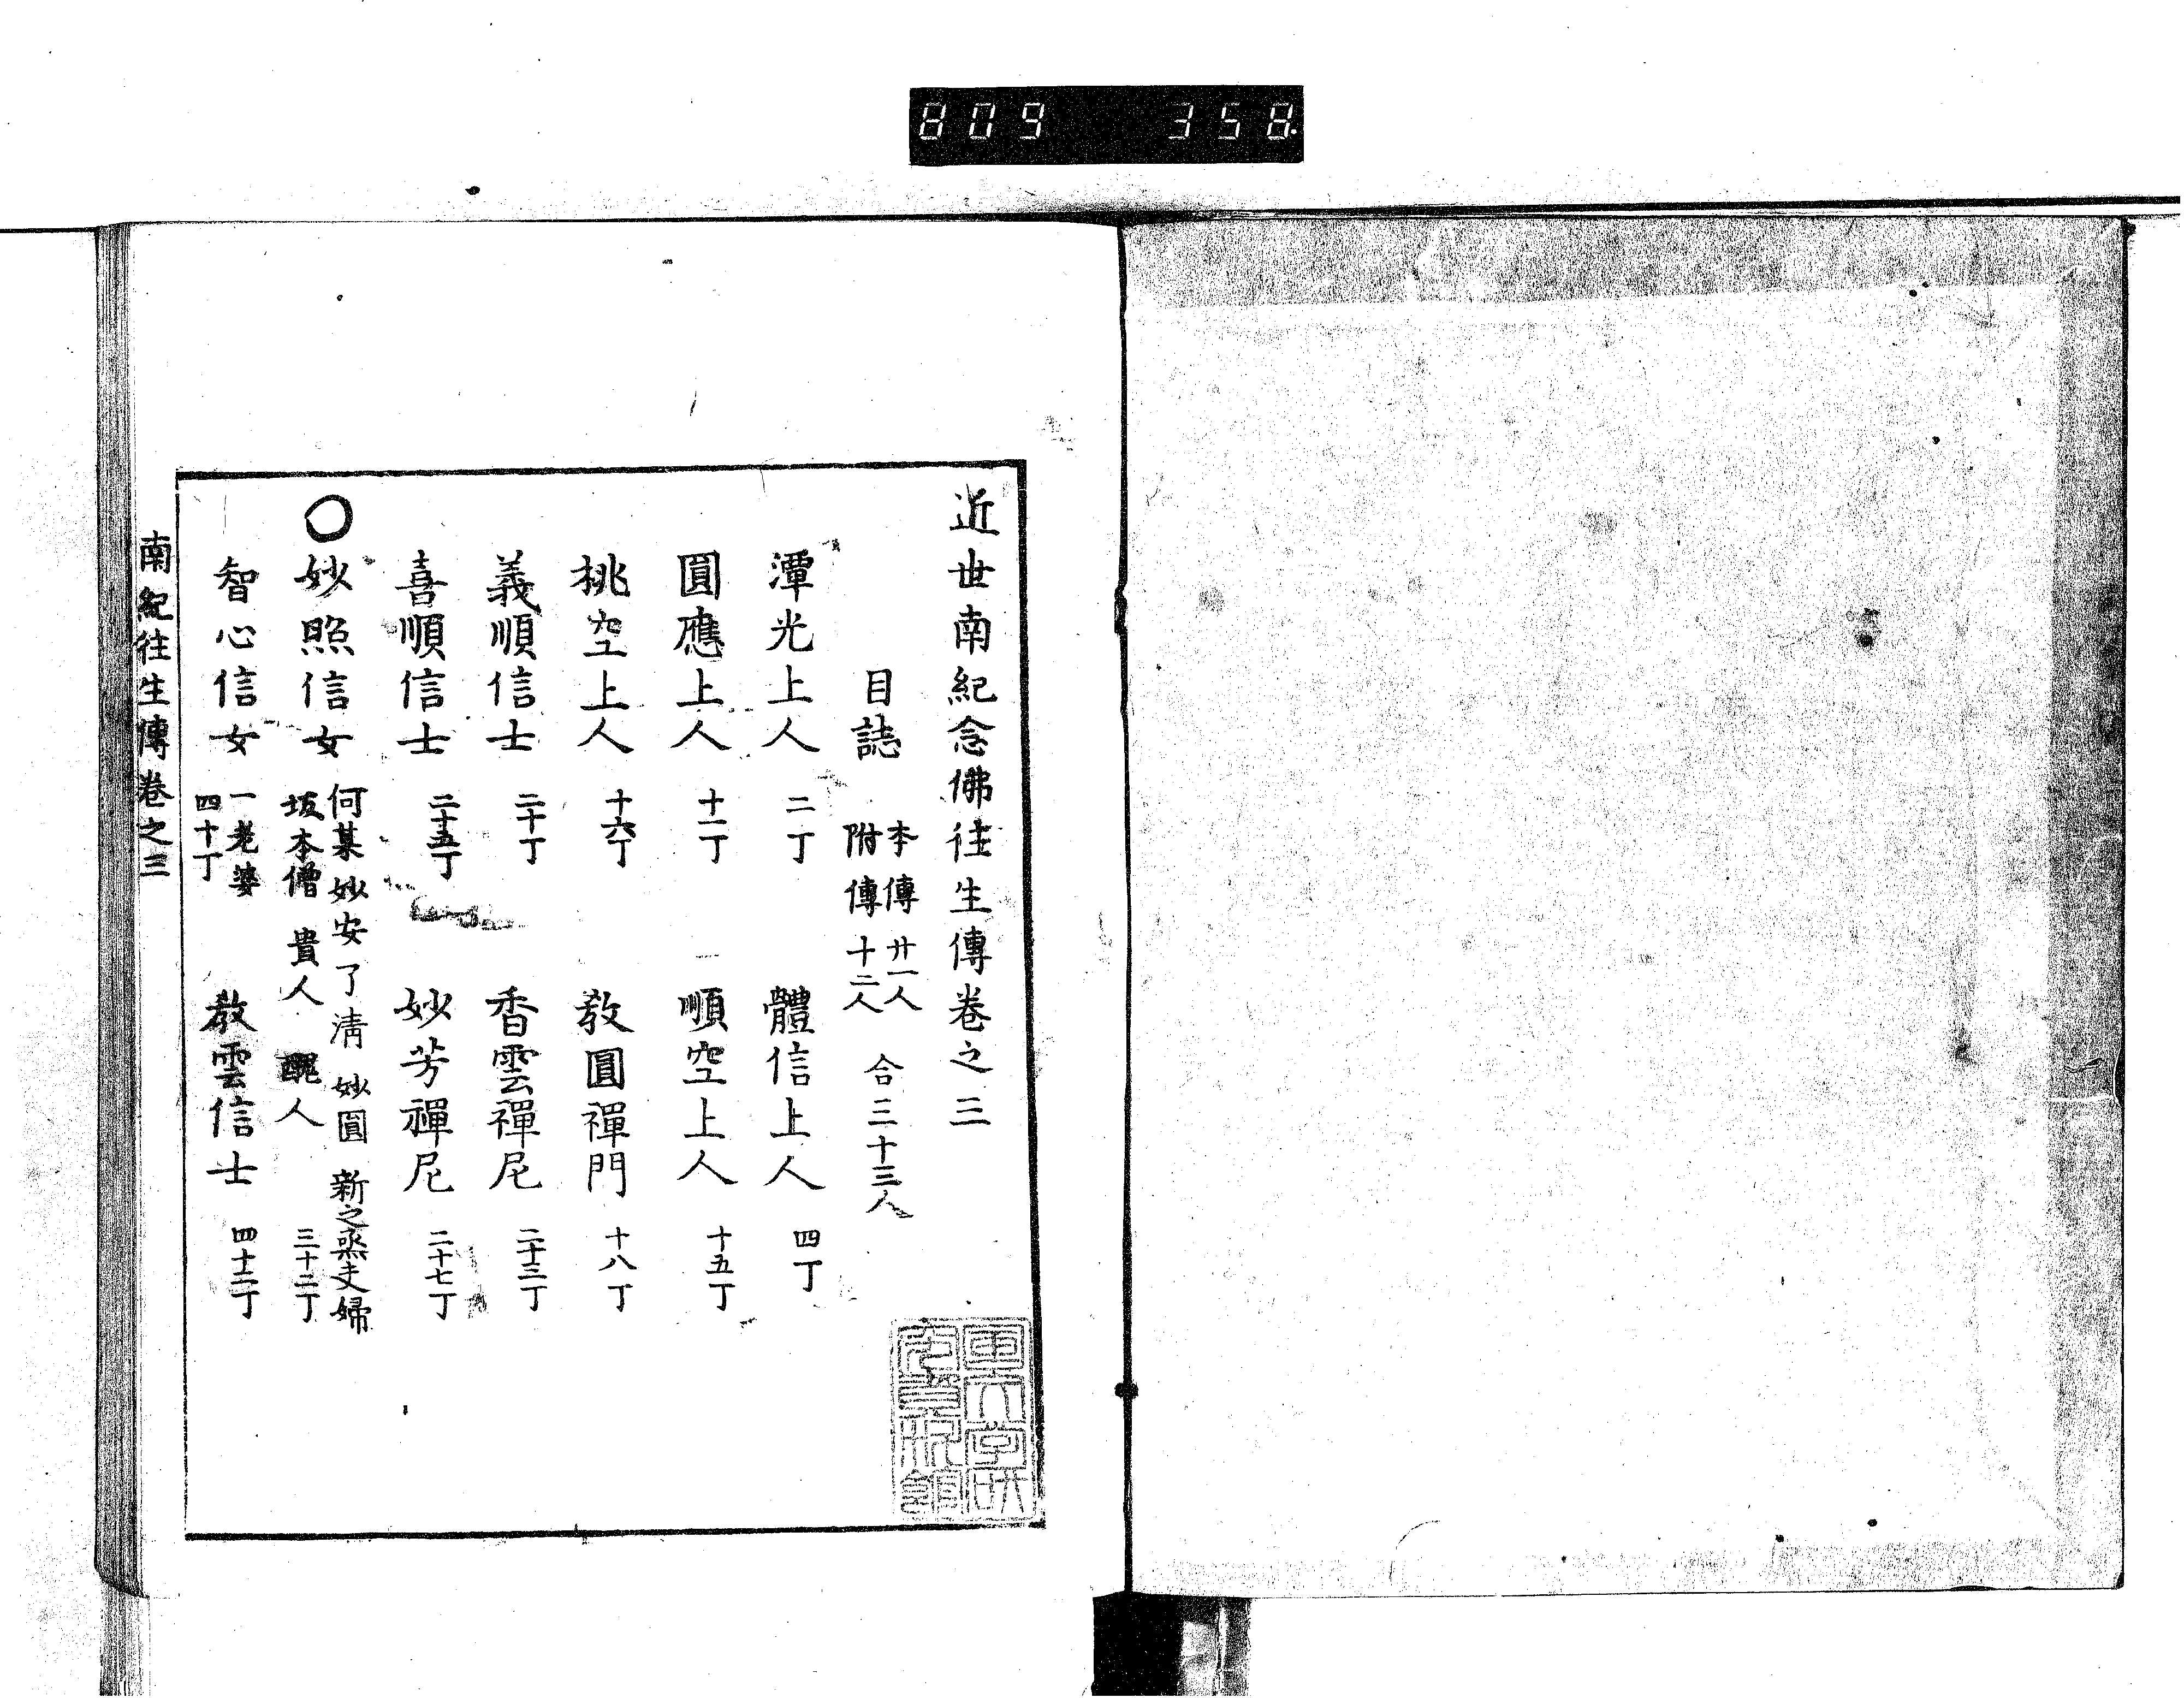 809 358.
近世南紀念佛往生傳卷之三
目誌 本傳廿一人 附傳十二人 合三十三人
潭光上人 二丁 體信上人 四丁
圓應上人 十一丁 順空上人 十五丁
桃空上人 十六丁 教圓禪門 十八丁
義順信士 二十丁 香雲禪尼 二十三丁
喜順信士 二十五丁 妙芳禪尼 二十七丁
〇妙照信女 何某 妙安 了淸 妙圓 新之烝夫婦 坂本僧 貴人 醜人 三十二丁
智心信女 一老婆 四十丁 教雲信士 四十二丁
南紀往生傳卷之三